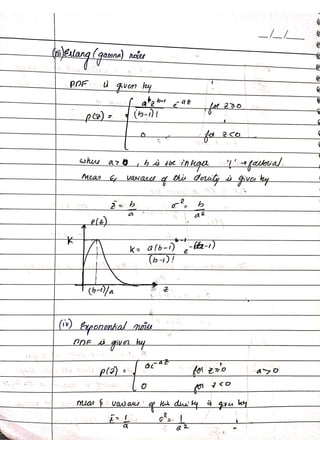 __/__/__
(iii) Erlang (gamma) noise
PDF is given by
p(z) = { a^b z^(b-1) / (b-1)! e^-az , for z≥0
0 for z<0
where a>0, b is +ve integer '!' → factorial.
Mean & variance of this density is given by
z̄ = b/a σ² = b/a²
P(z)
K K = a(b-1)^(b-1) / (b-1)! e^-(b-1)
(b-1)/a z
(iv) Exponential noise
PDF is given by
p(z) = { ae^-az for z≥0 a>0
0 for z<0
Mean & variance of this density is given by
z̄ = 1/a σ² = 1/a²